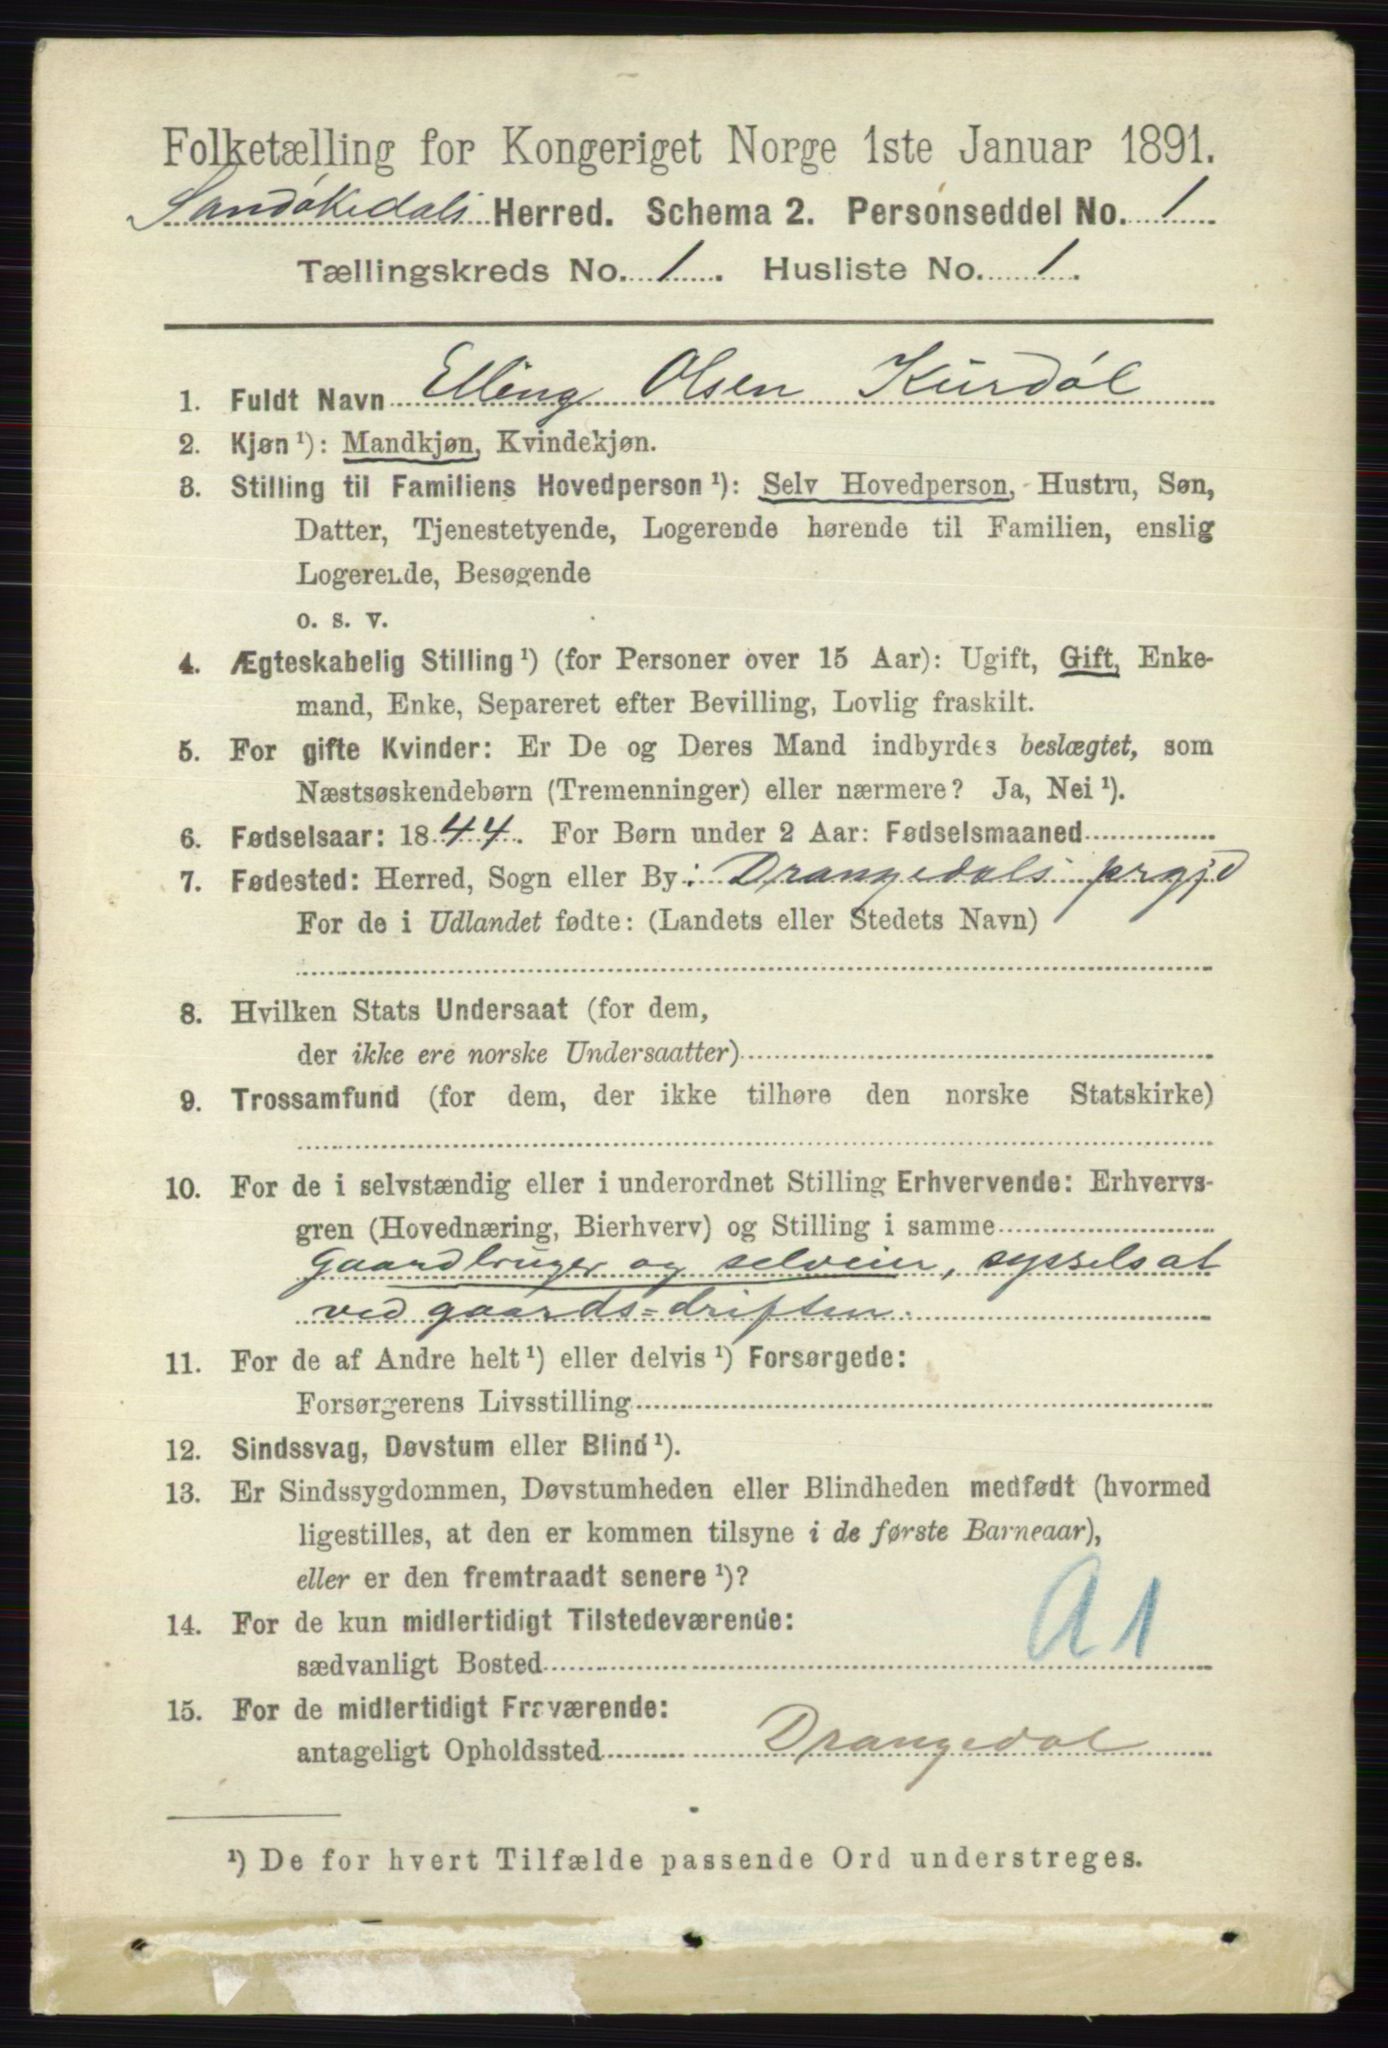 Folketælling for Kongeriget Norge 1ste Januar 1891.
Sandøkedals Herred. Schema 2. Personseddel No. 1
Tællingskreds No. 1. Husliste No. 1.
1. Fuldt Navn Elling Olsen Kurdøl
2. Kjøn¹): Mandkjøn, Kvindekjøn.
3. Stilling til Familiens Hovedperson¹): Selv Hovedperson, Hustru, Søn,
Datter, Tjenestetyende, Logerende hørende til Familien, enslig
Logerende, Besøgende
o. s. v.
4. Ægteskabelig Stilling¹) (for Personer over 15 Aar): Ugift, Gift, Enke-
mand, Enke, Separeret efter Bevilling, Lovlig fraskilt.
5. For gifte Kvinder: Er De og Deres Mand indbyrdes beslægtet, som
Næstsøskendebørn (Tremenninger) eller nærmere? Ja, Nei¹).
6. Fødselsaar: 1844. For Børn under 2 Aar: Fødselsmaaned
7. Fødested: Herred, Sogn eller By: Drangedals prgjd
For de i Udlandet fødte: (Landets eller Stedets Navn)
8. Hvilken Stats Undersaat (for dem,
der ikke ere norske Undersaatter)
9. Trossamfund (for dem, der ikke tilhøre den norske Statskirke)
10. For de i selvstændig eller i underordnet Stilling Erhvervende: Erhvervs-
gren (Hovednæring, Bierhverv) og Stilling i samme
gaardbruger og selveier, sysselsat
ved gaards=driften.
11. For de af Andre helt¹) eller delvis¹) Forsørgede:
Forsørgerens Livsstilling
12. Sindssvag, Døvstum eller Blind¹).
13. Er Sindssygdommen, Døvstumheden eller Blindheden medfødt (hvormed
ligestilles, at den er kommen tilsyne i de første Barneaar),
eller er den fremtraadt senere¹)?
A1
14. For de kun midlertidigt Tilstedeværende:
sædvanligt Bosted
15. For de midlertidigt Fraværende:
antageligt Opholdssted Drangedal
¹) De for hvert Tilfælde passende Ord understreges.